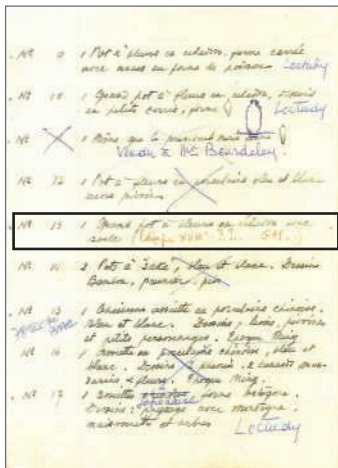 Nº 9 1 Pot à fleurs en céladon, forme carrée
avec anses en forme de poisson Loctudy
Nº 10 1 Grand pot à fleurs en céladon, dessin
en petits carrés, forme Loctudy
Nº 1 Même que le précédent mais
Vendu à Mr Beurdeley.
Nº 12 1 Pot à fleurs en porcelaine bleu et blanc
Nº 13 1 Grand pot à fleurs en céladon avec
socle.
Nº 14 2 Pots à Saké, bleu et blanc. Dessins
Bambou, prunier, pin
Nº 15 1 assiette en porcelaine chinoise.
Bleu et blanc. Dessins,
et petits personnages. Epoque Ming
Nº 16 1 assiette en porcelaine chinoise, bleu et
blanc. 2 canards man-
darins & fleurs. Epoque Ming.
Nº 17 1 Bouteille forme
japonaise
Dessins: paysage avec montagne,
maisonnette et arbres Loctudy